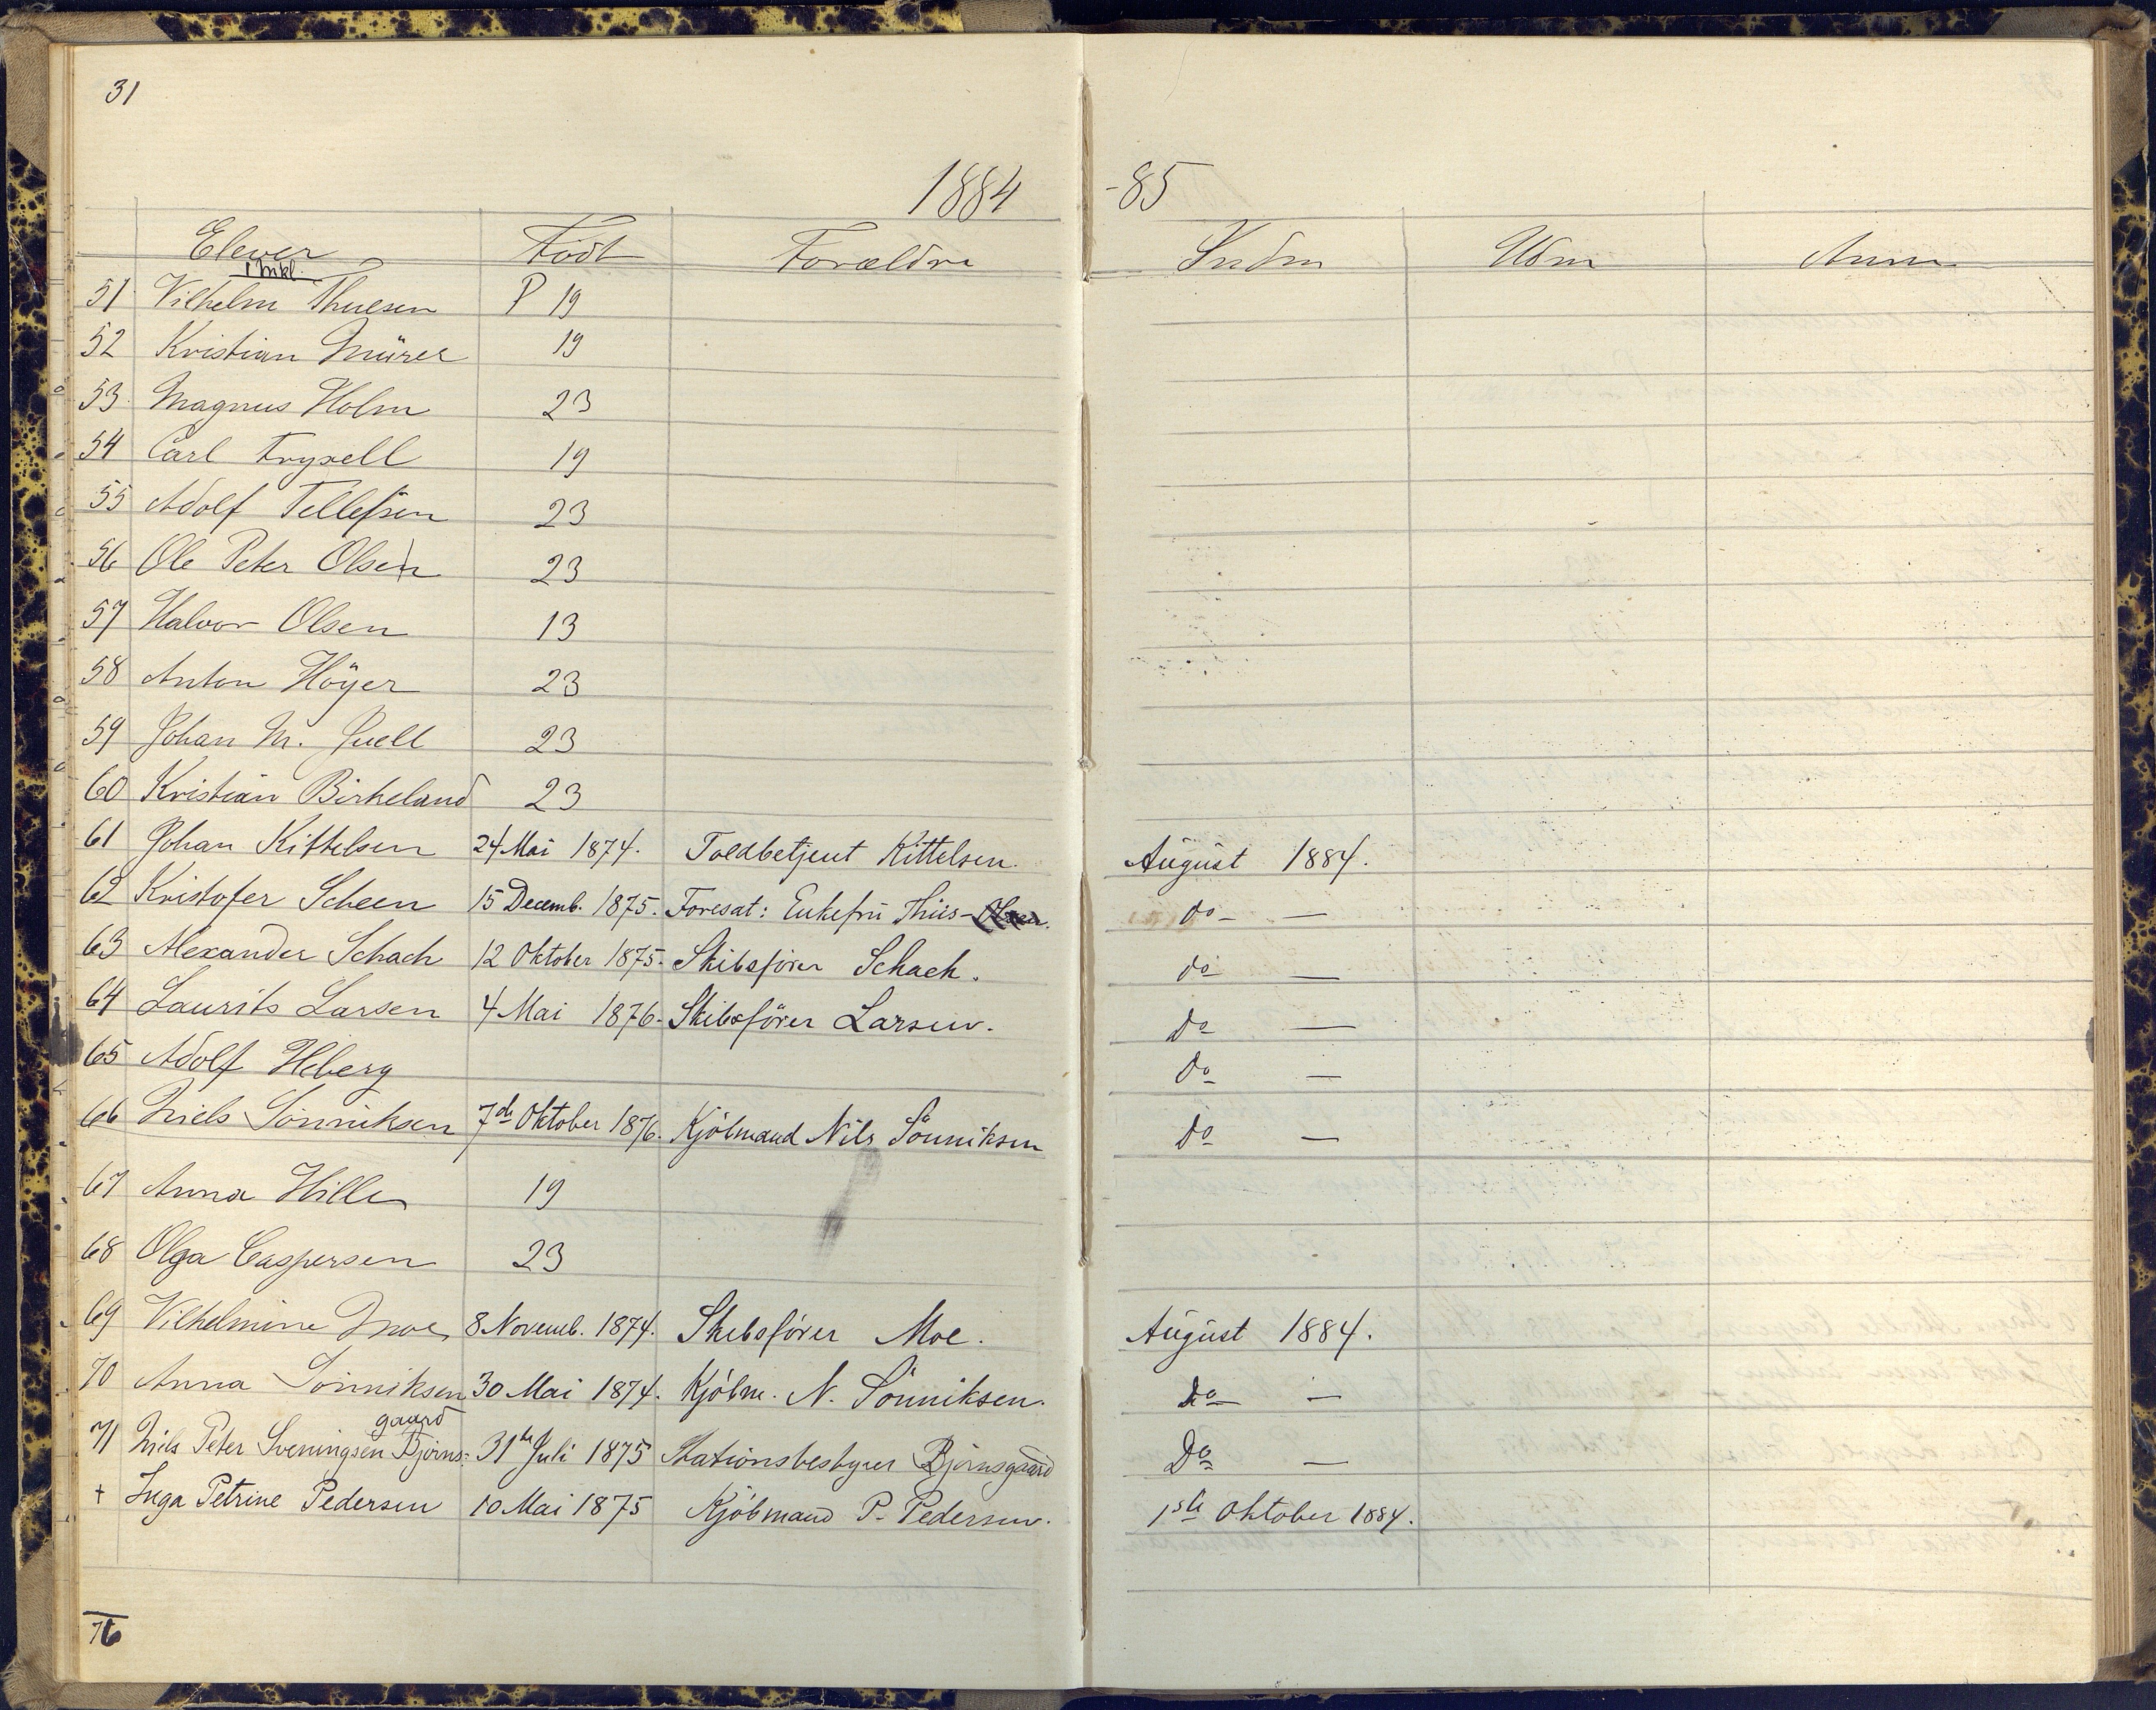 31
1884 -85
Elever Født Forældre Indm Udm Anm
1 Mkl.
51 Vilhelm Thuesen P 19
52 Kristian Mürer 19
53 Magnus Holm 23
54 Carl Fryxell 19
55 Adolf Tellefsen 23
56 Ole Peter Olsen 23
57 Halvor Olsen 13
58 Anton Höyer 23
59 Johan M. Juell 23
60 Kristian Birkeland 23
61 Johan Kittelsen 24 Mai 1874. Toldbetjent Kittelsen. August 1884.
62 Kristofer Scheen 15 Decemb. 1875. Foresat: Enkefru Thiis- do —
63 Alexander Schach 12 Oktober 1875. Skibsfører Schach. do —
64 Laurits Larsen 4 Mai 1876. Skibsfører Larsen. do —
65 Adolf Heberg do —
66 Niels Sönniksen 7de Oktober 1876. Kjöbmand Nils Sönniksen do —
67 Anna Hille 19
68 Olga Caspersen 23
69 Vilhelmine Moe 8 Novemb. 1874. Skibsfører Moe. August 1884.
70 Anna Sönniksen 30 Mai 1874. Kjöbm. N. Sönniksen. do —
gaard
71 Niels Peter Sveningsen Björns- 31te Juli 1875 Stationsbestyrer Björnsgaard Do —
+ Inga Petrine Pedersen 10 Mai 1875 Kjöbmand P. Pedersen. 1ste Oktober 1884.
76